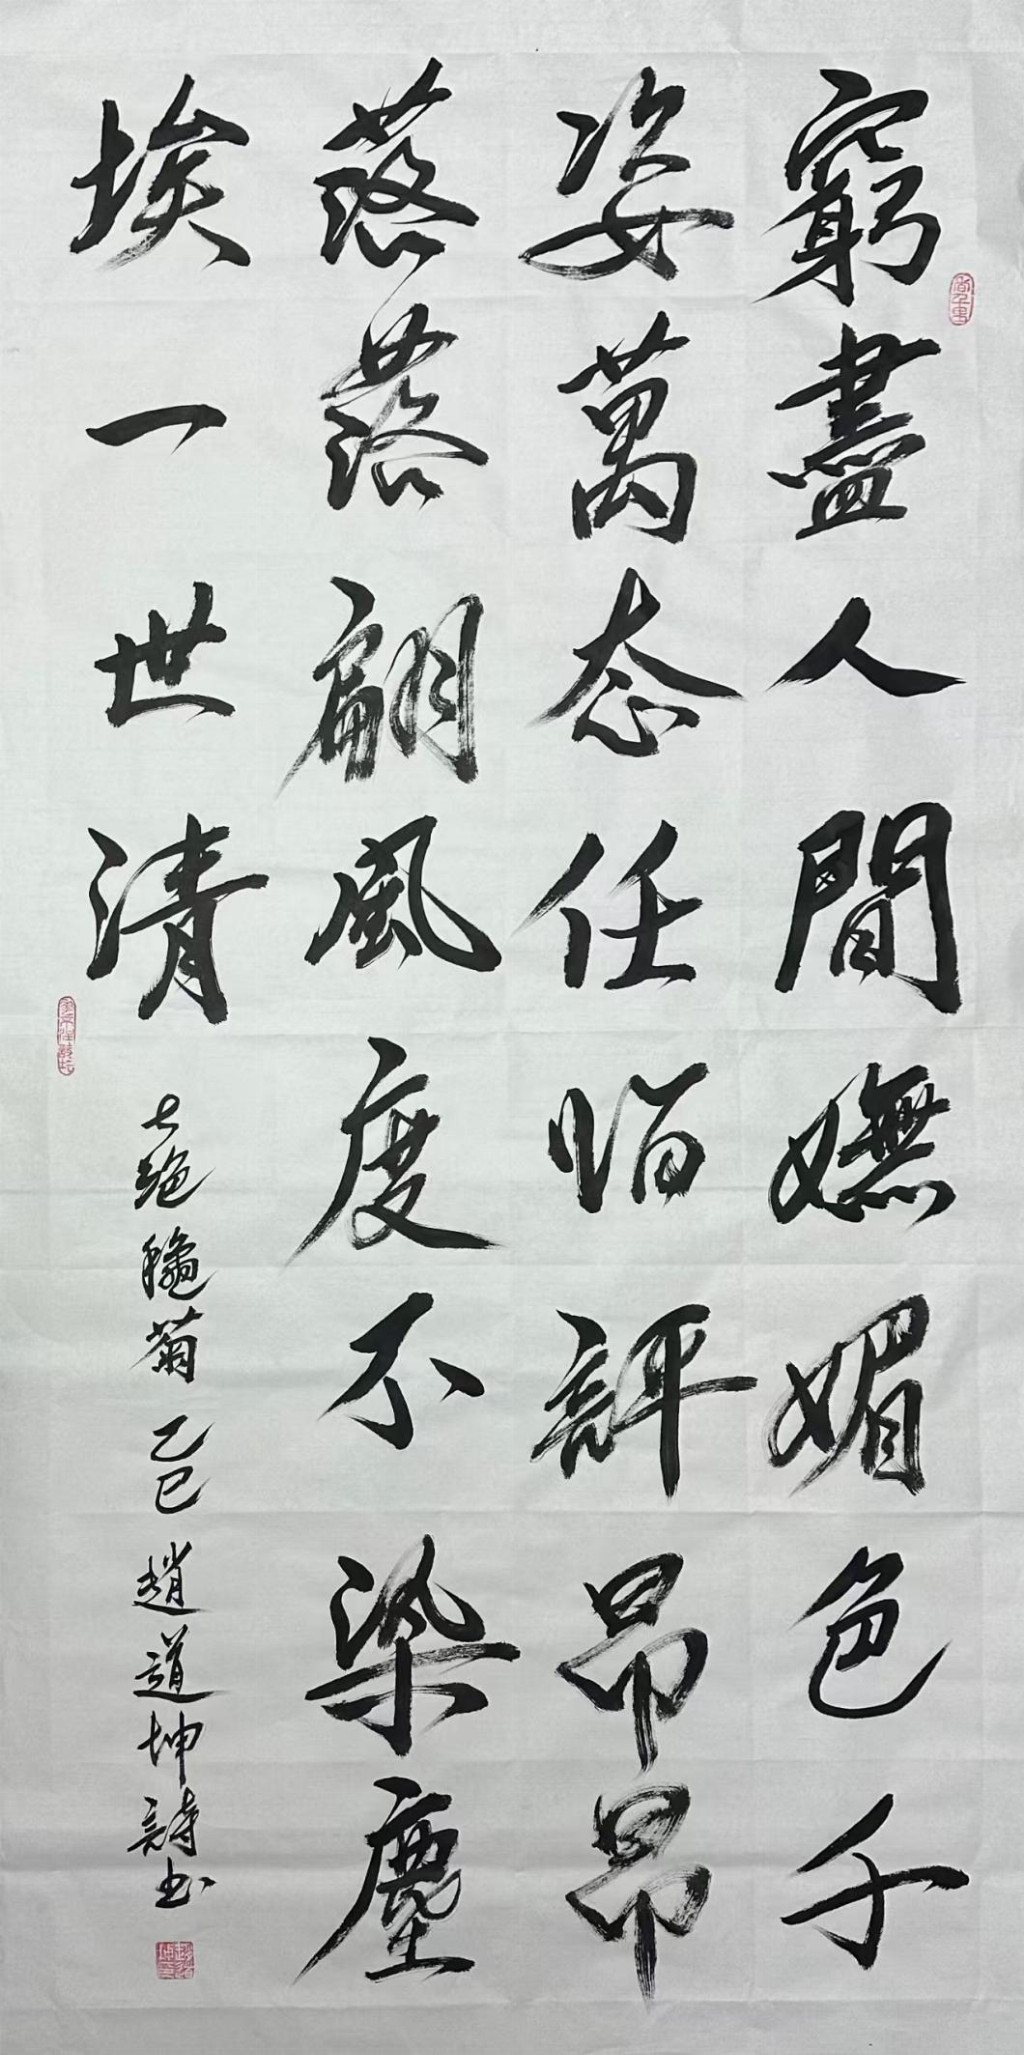 窮盡人間嫵媚色千
姿萬态任陌評昂昂
落落翩風度不染塵
埃一世清
七絶龝菊 乙巳 趙道坤詩书